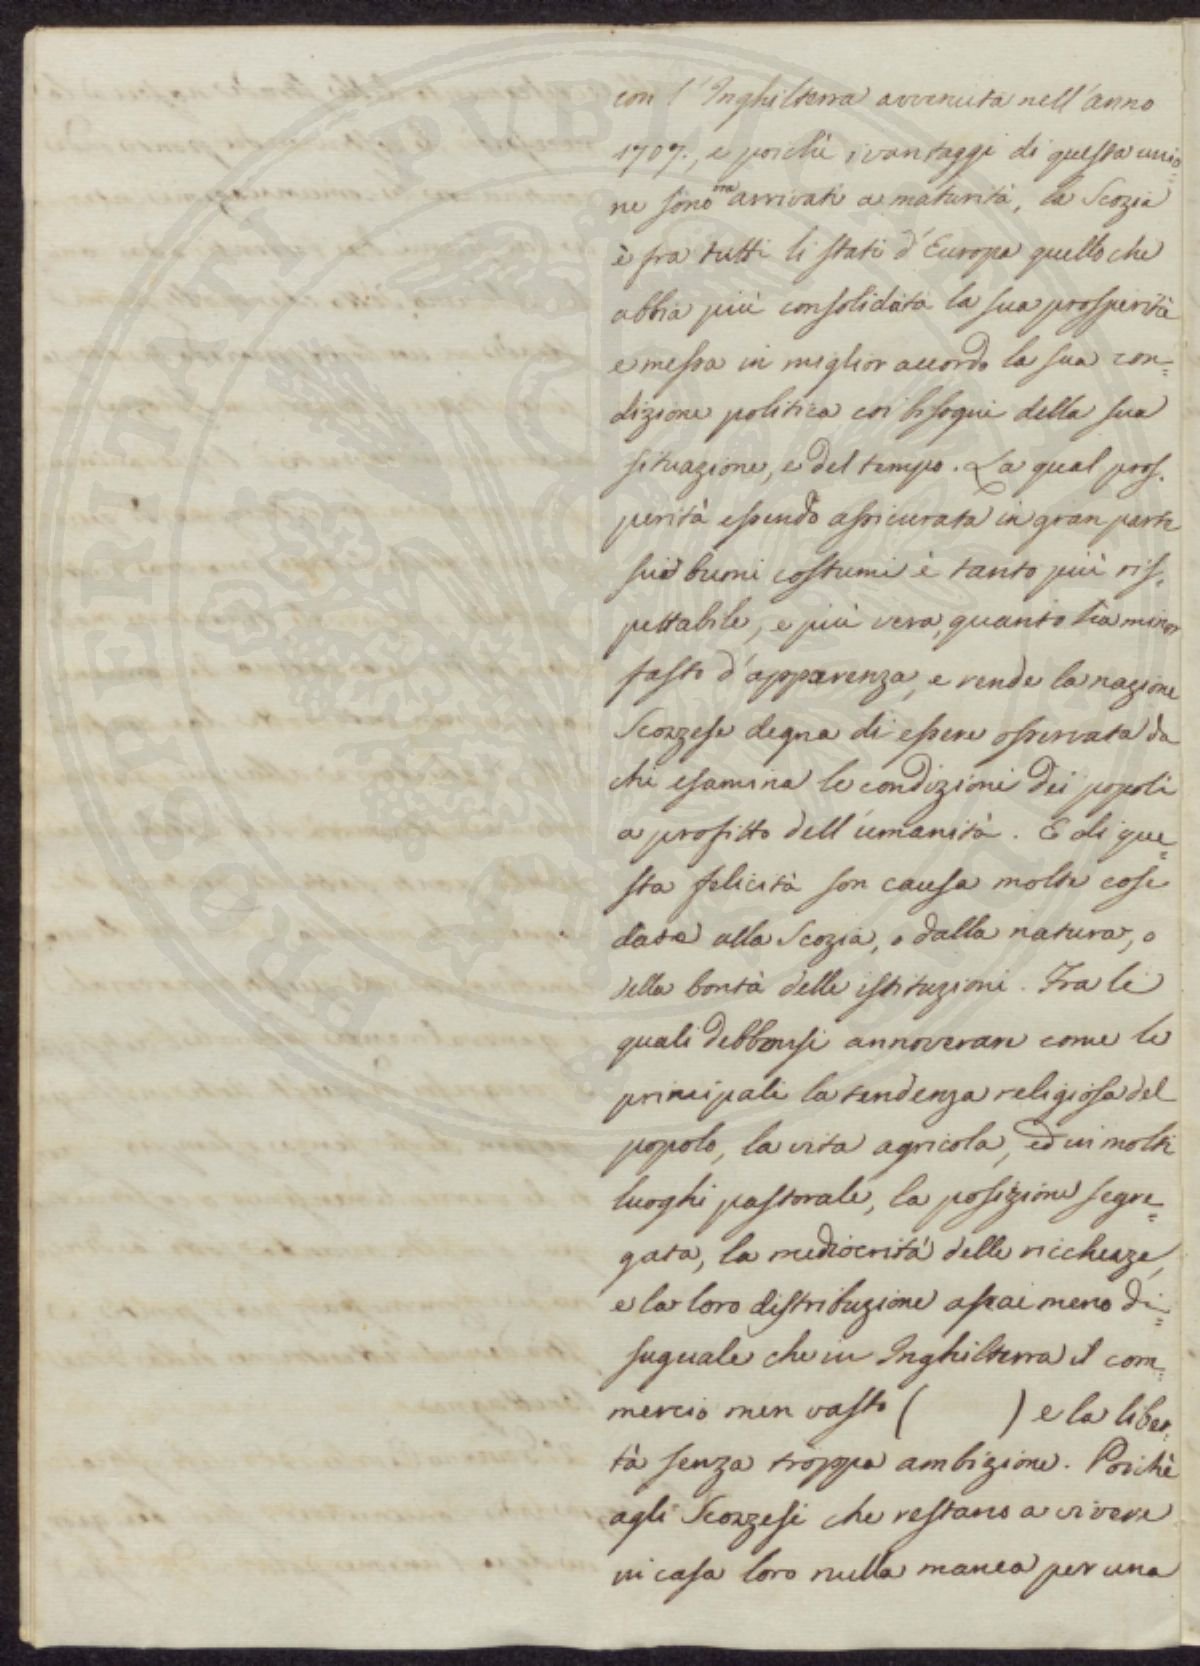 con l'Inghilterra avvenuta nell'anno
1707., e poichè i vantaggi di questa unio=
ne sono ora arrivati a maturità, la Scozia
è fra tutti li stati d'Europa quello che
abbia più consolidata la sua prosperità
e messa in miglior accordo la sua con=
dizione politica coi bisogni della sua
situazione, e del tempo. La qual pros-
perità essendo assicurata in gran parte
sui buoni costumi è tanto più ris-
pettabile, e più vera, quanto ha minor
fasto d'apparenza, e rende la nazione
Scozzese degna di essere osservata da
chi esamina le condizioni dei popoli
a profitto dell'umanità. E di que=
sta felicità son causa molte cose
date alla Scozia, o dalla natura, o
della bontà delle istituzioni. Fra le
quali debbonsi annoverare come le
principali la tendenza religiosa del
popolo, la vita agricola, ed in molti
luoghi pastorale, la posizione segre=
gata, la mediocrità delle ricchezze,
e la loro distribuzione assai meno di=
suguale che in Inghilterra il com=
mercio men vasto ( ) e la liber=
tà senza troppa ambizione. Poichè
agli Scozzesi che restano a vivere
in casa loro nulla manca per una
PROSPERITATI PUBLICAE